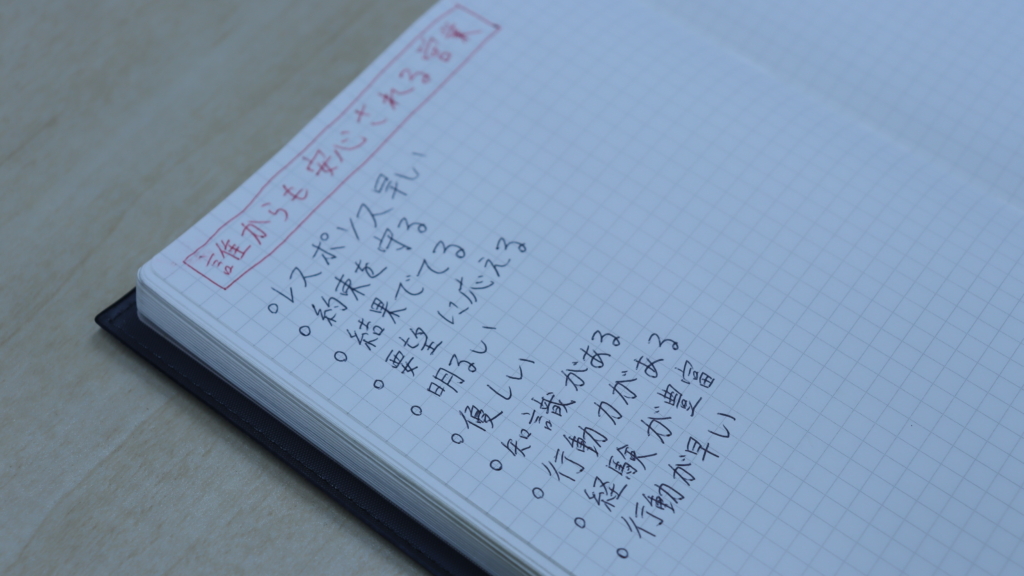 誰からも安心される営業
○レスポンス早い
○約束を守る
○結果でてる
○要望に応える
○明るい
○優しい
○知識がある
○行動力がある
○経験が豊富
○行動が早い